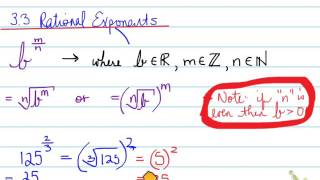 3.3 Rational Exponents
b^(m/n) → where b∈ℝ, m∈ℤ, n∈ℕ
= ⁿ√b^m or = (ⁿ√b)^m
Note: if "n" is
even then b>0
125^(2/3) = (³√125)^2 = (5)^2
= 25